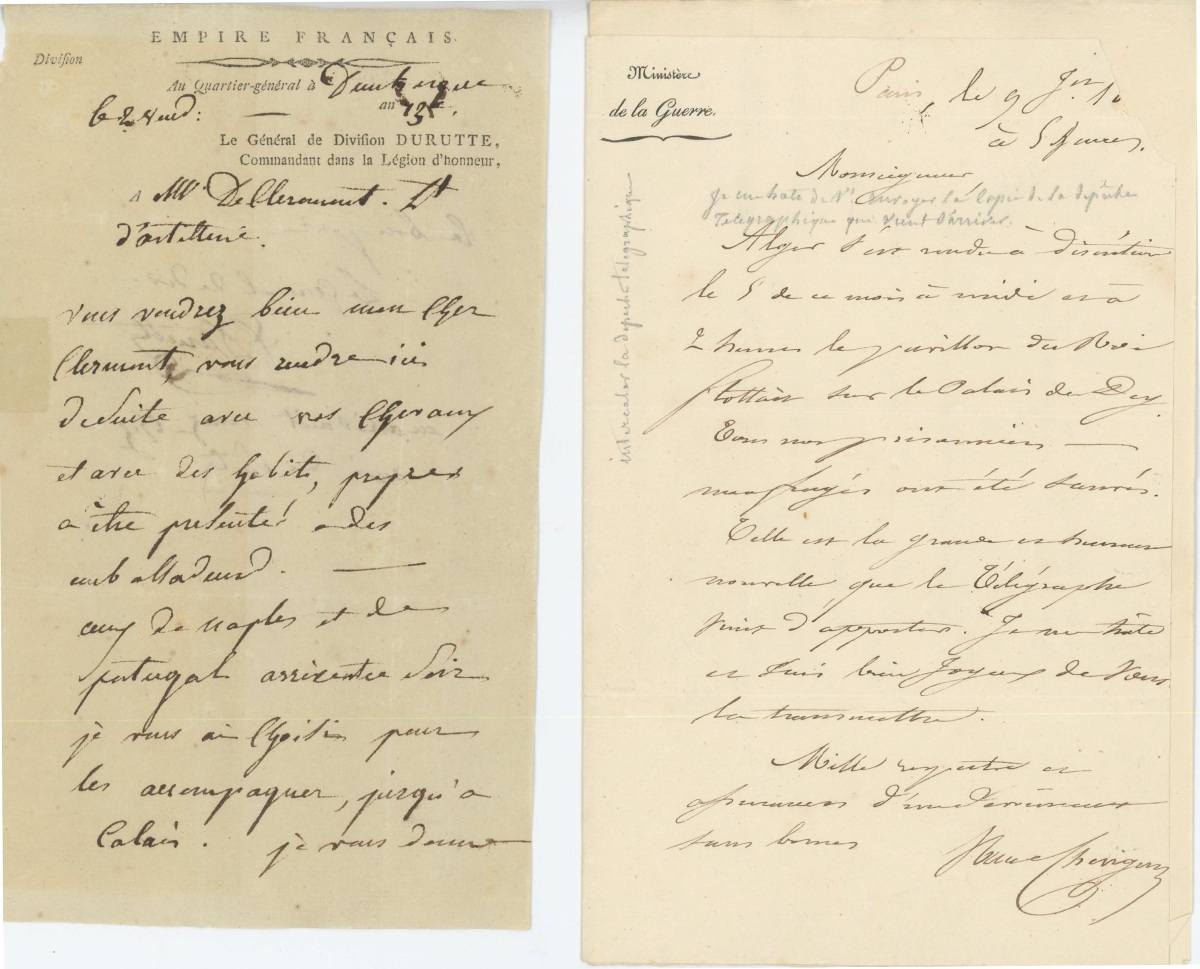 EMPIRE FRANÇAIS.
Division
Au Quartier-général à Dunkerque
le 2 vend: an 13e.
Le Général de Division DURUTTE,
Commandant dans la Légion d'honneur,
A Mr DeClermont. Lt
d'artillerie.
vous voudrez bien mon Cher
Clermont, vous rendre ici
de Suite avec vos Chevaux
et avec des habits, propres
a être présenté a des
ambassadeurs.
ceux de naples et de
portugal arrivent ce Soir
je vous ai Choisi pour
les accompagner, jusqu'a
Calais. je vous donne
Ministère
de la Guerre.
Paris, le 9 Jet
à 5 heures.
Monseigneur
Je me hate de Vs Envoyer la Copie de la depêche
Telegraphique qui vient d'arriver.
intercaler la depeche telegraphique
Alger s'est rendu à discrétion
le 5 de ce mois à midi et à
2 heures le pavillon du Roi
flottait sur le Palais du Dey.
Tous nos prisonniers
naufragés ont été sauvés.
Telle est la grande et heureuse
nouvelle, que le Télégraphe
vient d'apporter. Je me hâte
et suis bien joyeux de Vous
la transmettre.
Mille respects et
assurances d'un dévouement
sans bornes